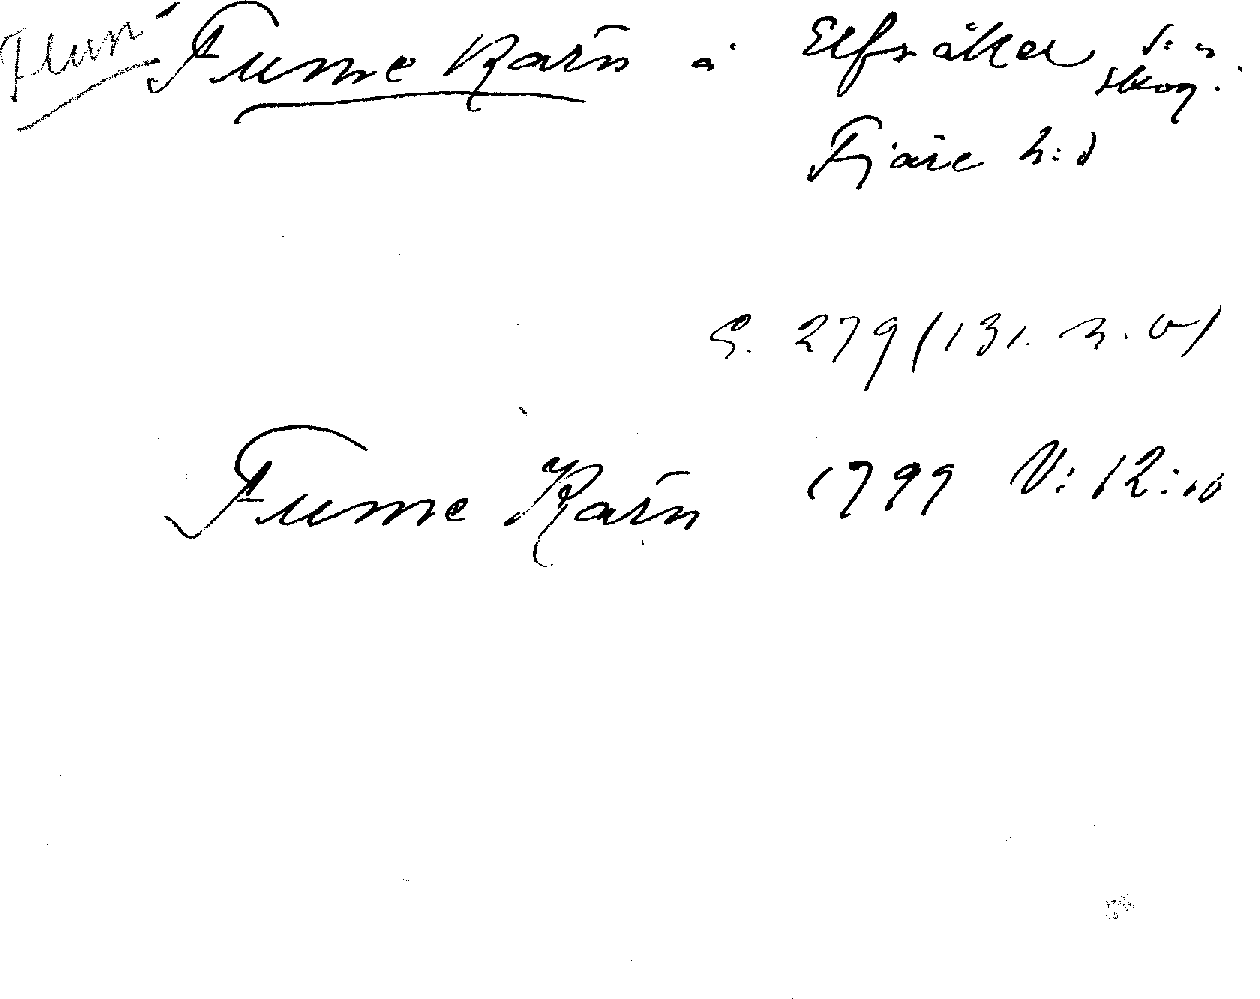 Flun Fume Kärn å Elfsåker s:n
skog.
Fjäre h:d
S. 279 (131. n. v)
Fume Kärn 1799 V: 12:10